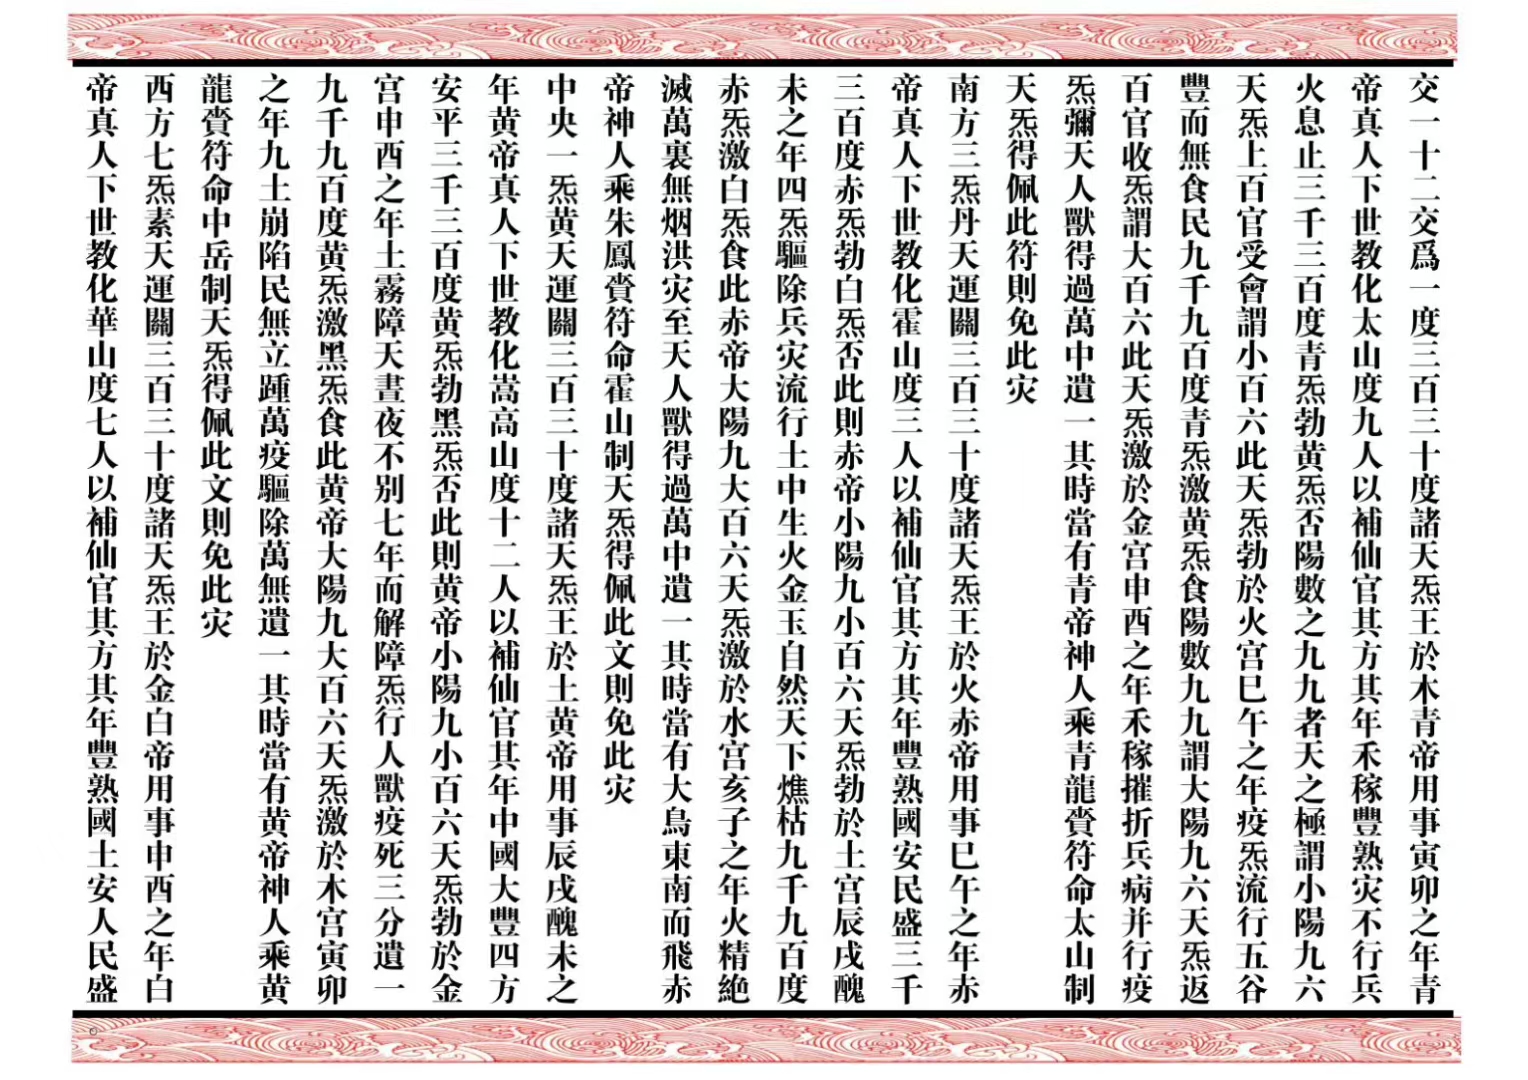 交一十二交爲一度三百三十度諸天炁王於木青帝用事寅卯之年青
帝真人下世教化太山度九人以補仙官其方其年禾稼豐熟灾不行兵
火息止三千三百度青炁勃黄炁否陽數之九九者天之極謂小陽九六
天炁上百官受會謂小百六此天炁勃於火宫巳午之年疫炁流行五谷
豐而無食民九千九百度青炁激黄炁食陽數九九謂大陽九六天炁返
百官收炁謂大百六此天炁激於金宫申酉之年禾稼摧折兵病并行疫
炁彌天人獸得過萬中遺一其時當有青帝神人乘青龍賫符命太山制
天炁得佩此符則免此灾
南方三炁丹天運關三百三十度諸天炁王於火赤帝用事巳午之年赤
帝真人下世教化霍山度三人以補仙官其方其年豐熟國安民盛三千
三百度赤炁勃白炁否此則赤帝小陽九小百六天炁勃於土宫辰戌醜
未之年四炁驅除兵灾流行上中生火金玉自然天下燋枯九千九百度
赤炁激白炁食此赤帝大陽九大百六天炁激於水宫亥子之年火精絶
滅萬裏無烟洪灾至天人獸得過萬中遺一其時當有大鳥東南而飛赤
帝神人乘朱鳳賫符命霍山制天炁得佩此文則免此灾
中央一炁黄天運關三百三十度諸天炁王於土黄帝用事辰戌醜未之
年黄帝真人下世教化嵩高山度十二人以補仙官其年中國大豐四方
安平三千三百度黄炁勃黑炁否此則黄帝小陽九小百六天炁勃於金
宫申酉之年土霧障天晝夜不别七年而解障炁行人獸疫死三分遺一
九千九百度黄炁激黑炁食此黄帝大陽九大百六天炁激於木宫寅卯
之年九土崩陷民無立踵萬疫驅除萬無遺一其時當有黄帝神人乘黄
龍賫符命中岳制天炁得佩此文則免此灾
西方七炁素天運關三百三十度諸天炁王於金白帝用事申酉之年白
帝真人下世教化華山度七人以補仙官其方其年豐熟國土安人民盛